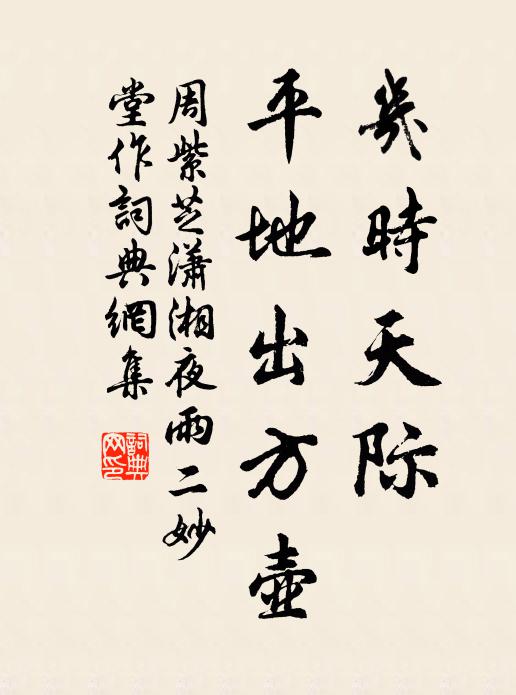 幾時天际
平地出方壺
周紫芝瀟湘夜雨二妙
堂作詞典網集
詞典
网印